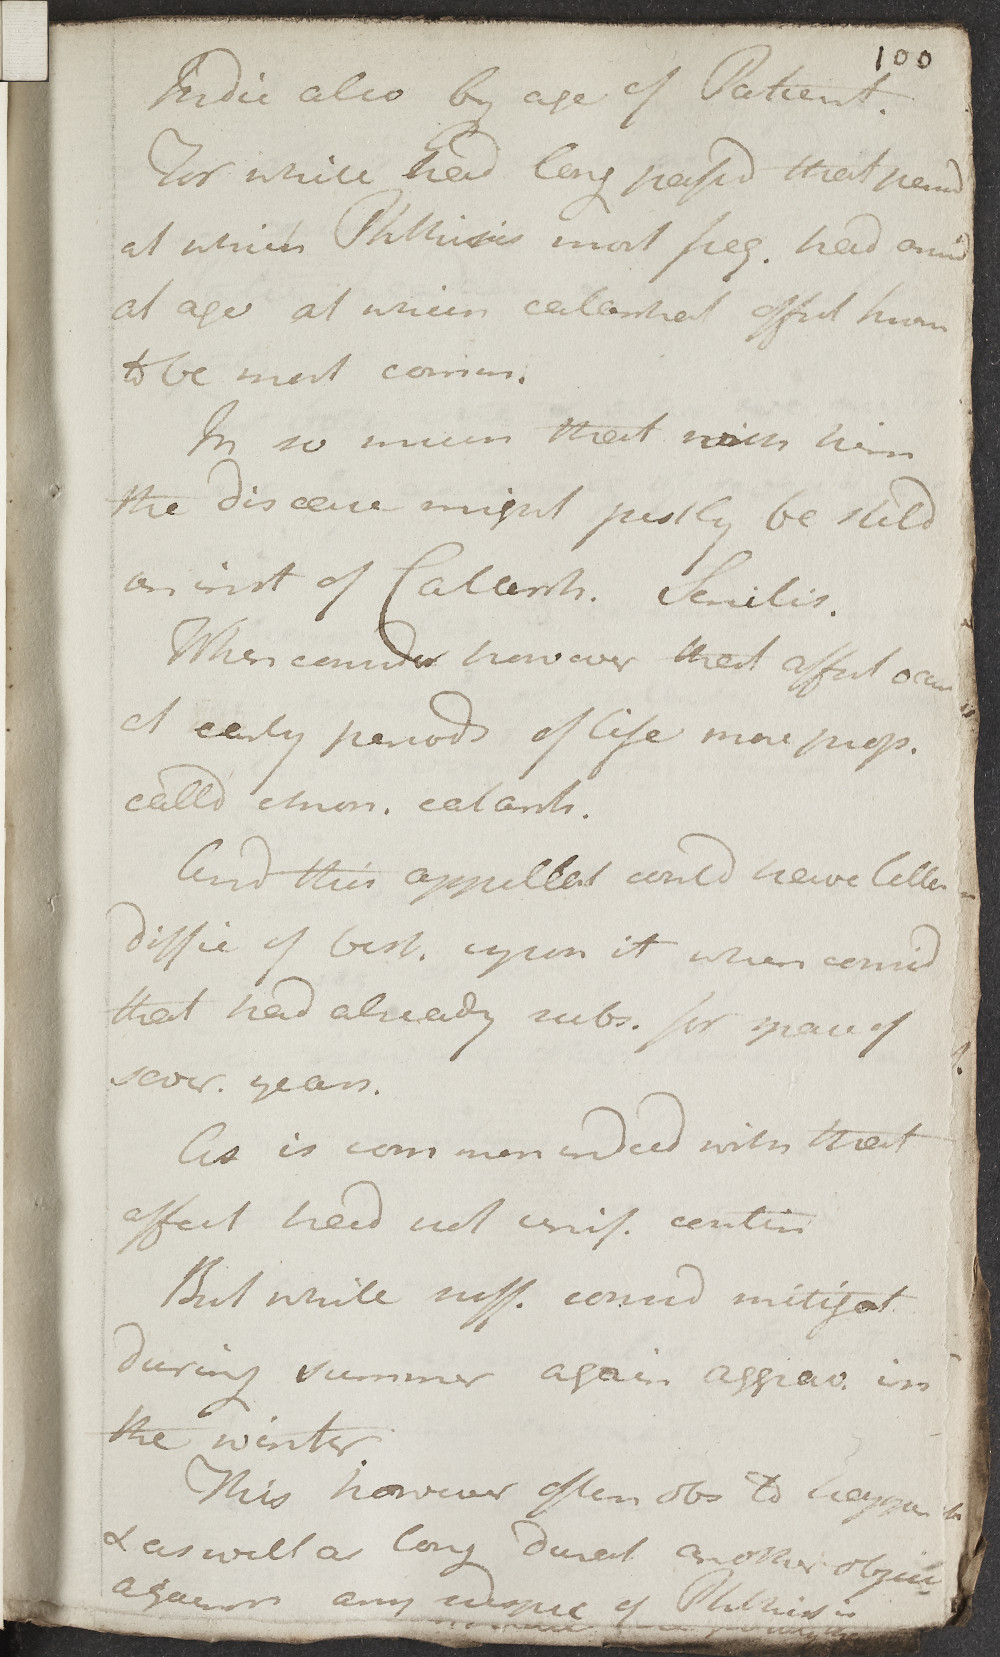 100
Indic also by age of Patient.
For while had long passd that period
at which Phthisis most freq. had arriv
at age at which catarrhal affect known
to be most common.
In so much that with him
the disease might justly be stild
an inst of Catarrh. Senilis.
When consider however that affect occurs
at early periods of life more prop.
calld chron. catarrh.
And this appellat could have little
diffic of best. upon it when consid
that had already subs. for space of
sever. years.
As is common indeed with that
affect had not unif. contin
But while suff. consid mitigat
during summer again aggrav. in
the winter
This however often obs to happen
& as well as long durat another object
against any suspic of Phthisis